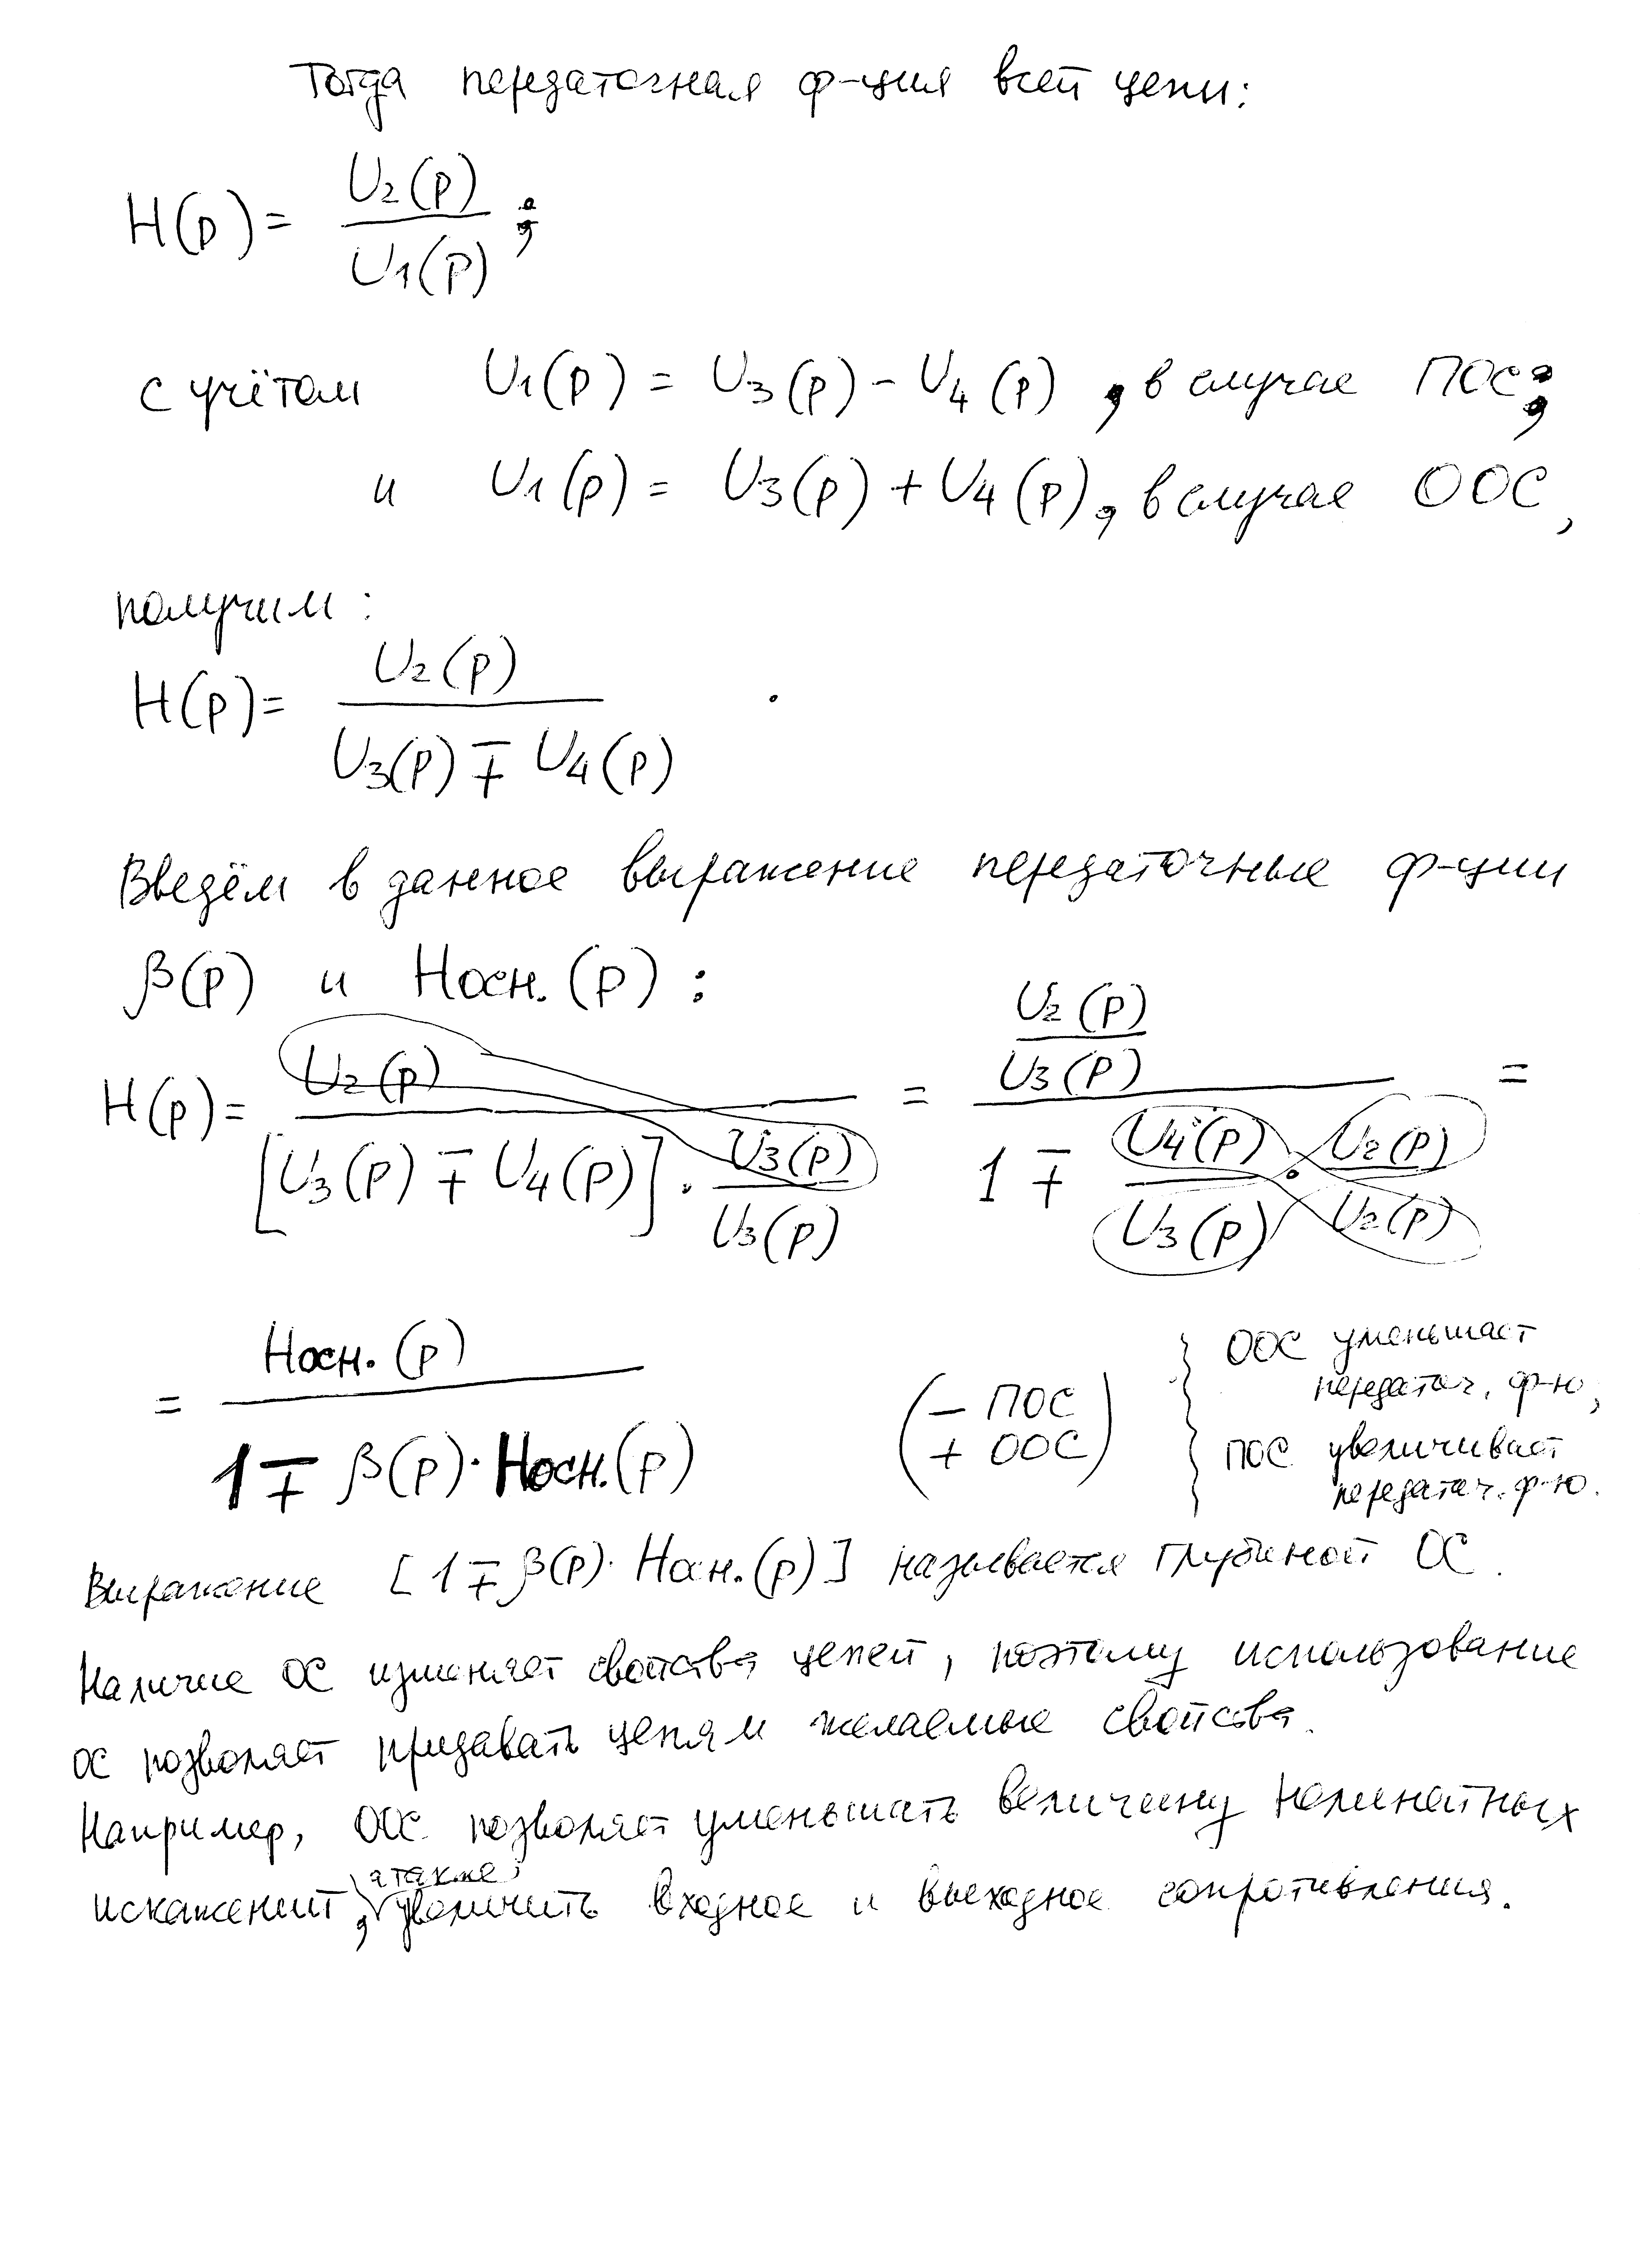 Тогда передаточная ф-ция всей цепи:
H(p) = U2(p) / U1(p) ;
с учётом U1(p) = U3(p) - U4(p) , в случае ПОС;
и U1(p) = U3(p) + U4(p), в случае ООС,
получим:
H(p) = U2(p) / U3(p) ∓ U4(p)
Введём в данное выражение передаточные ф-ции
β(p) и Hосн.(p) :
H(p) = U2(p) / [U3(p) ∓ U4(p)] · U3(p) / U3(p) = U2(p) / U3(p) / 1 ∓ U4(p) / U3(p) · U2(p) / U2(p) =
= Hосн.(p) / 1 ∓ β(p) · Hосн.(p)
(– ПОС
+ ООС)
ООС уменьшает
передаточ. ф-ю,
ПОС увеличивает
передаточ. ф-ю.
Выражение [1 ∓ β(p) · Hосн.(p)] называется глубиной ОС.
Наличие ОС изменяет свойства цепей, поэтому использование
ОС позволяет придавать цепям желаемые свойства.
Например, ООС позволяет уменьшать величину нелинейных
искажений, а также увеличить входное и выходное сопротивления.